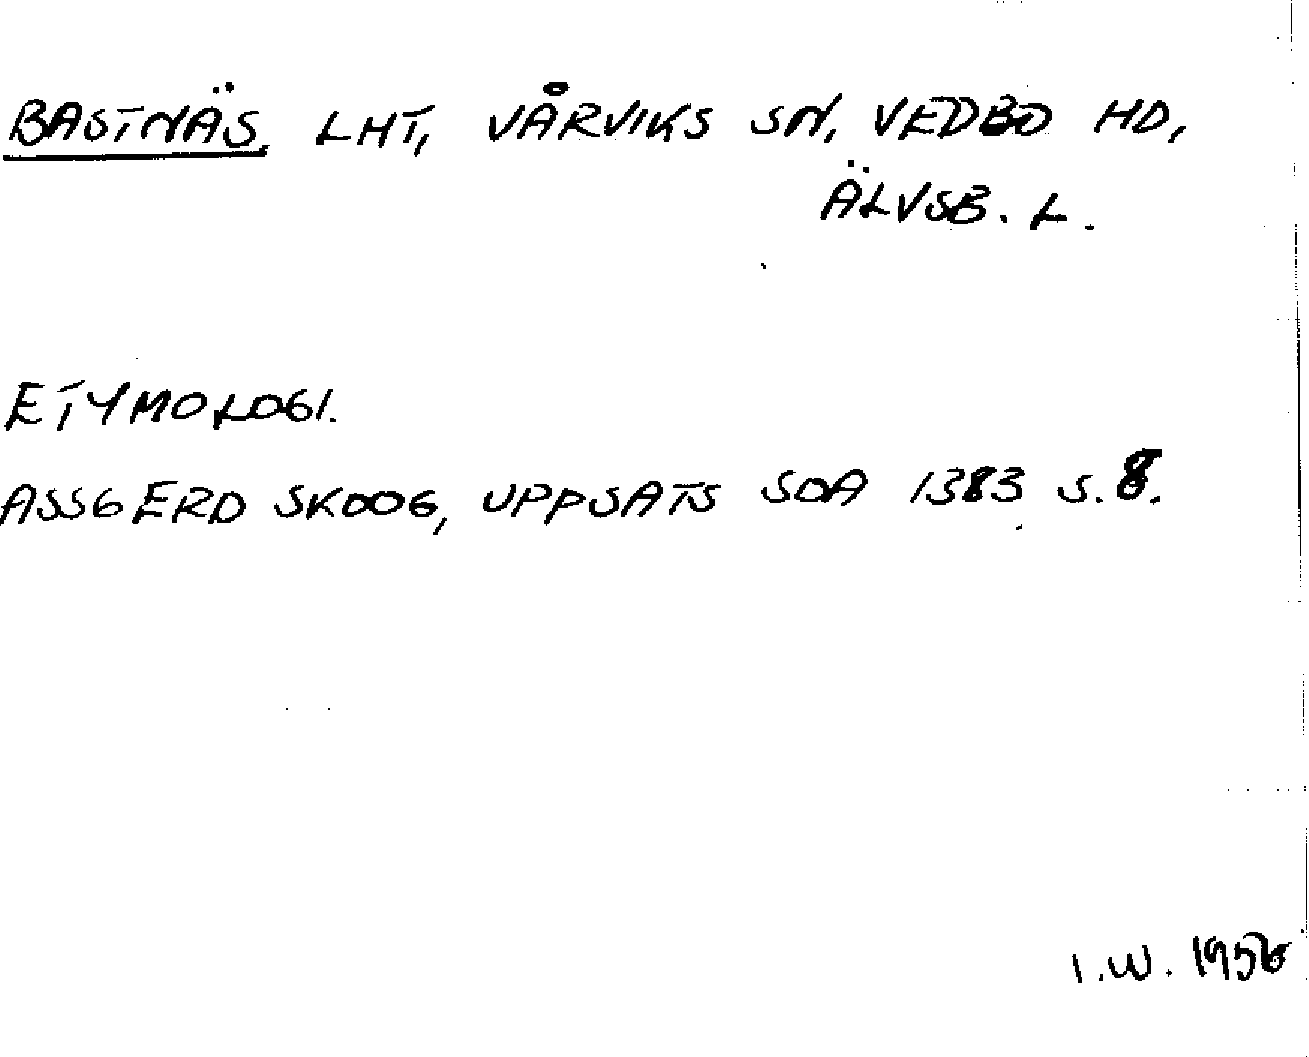 BASTNÄS, LHT, VÅRVIKS SN, VEDBO HD,
ÄLVSB. L.
ETYMOLOGI.
ASSGERD SKOOG, UPPSATS SOA 1383 S. 8.
I.W. 1956